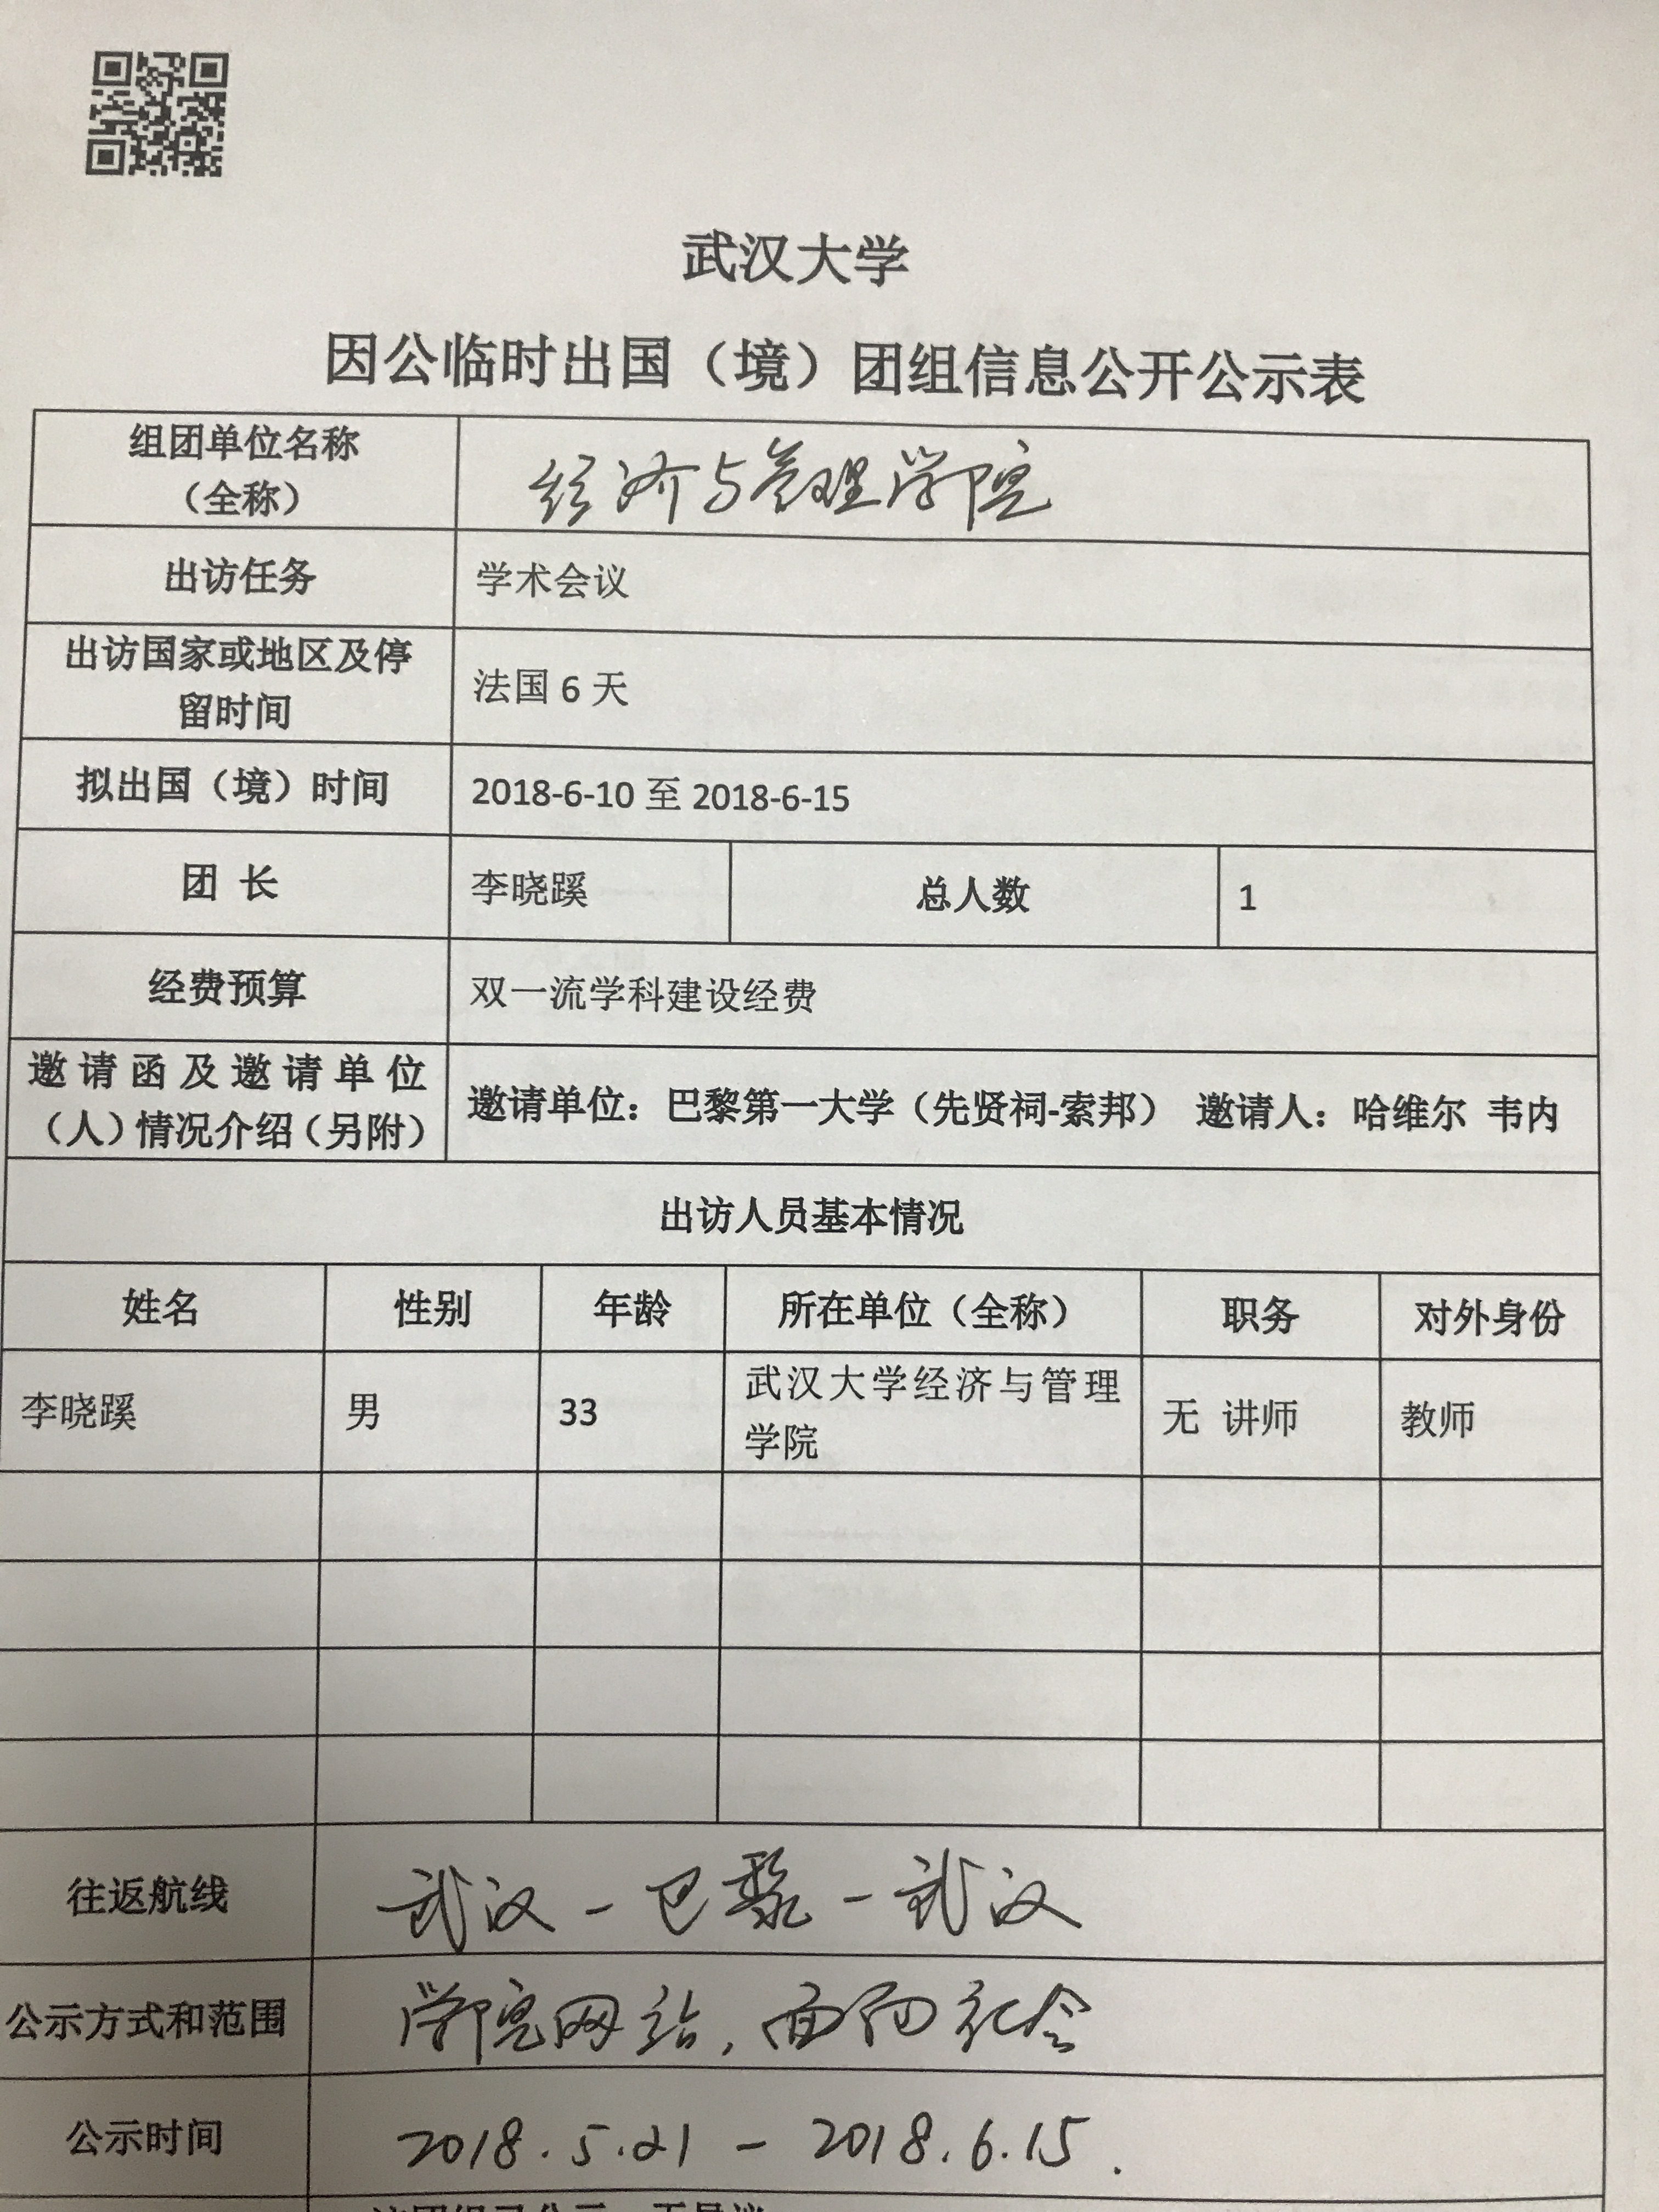 武汉大学
因公临时出国（境）团组信息公开公示表
组团单位名称
（全称）
经济与管理学院
出访任务
学术会议
出访国家或地区及停
留时间
法国 6 天
拟出国（境）时间
2018-6-10 至 2018-6-15
团 长
李晓蹊
总人数
1
经费预算
双一流学科建设经费
邀请函及邀请单位
（人）情况介绍（另附）
邀请单位：巴黎第一大学（先贤祠-索邦） 邀请人：哈维尔 韦内
出访人员基本情况
姓名 性别 年龄 所在单位（全称） 职务 对外身份
李晓蹊 男 33 武汉大学经济与管理
学院
无 讲师 教师
往返航线
武汉-巴黎-武汉
公示方式和范围
学院网站，面向社会
公示时间
2018.5.21 - 2018.6.15.